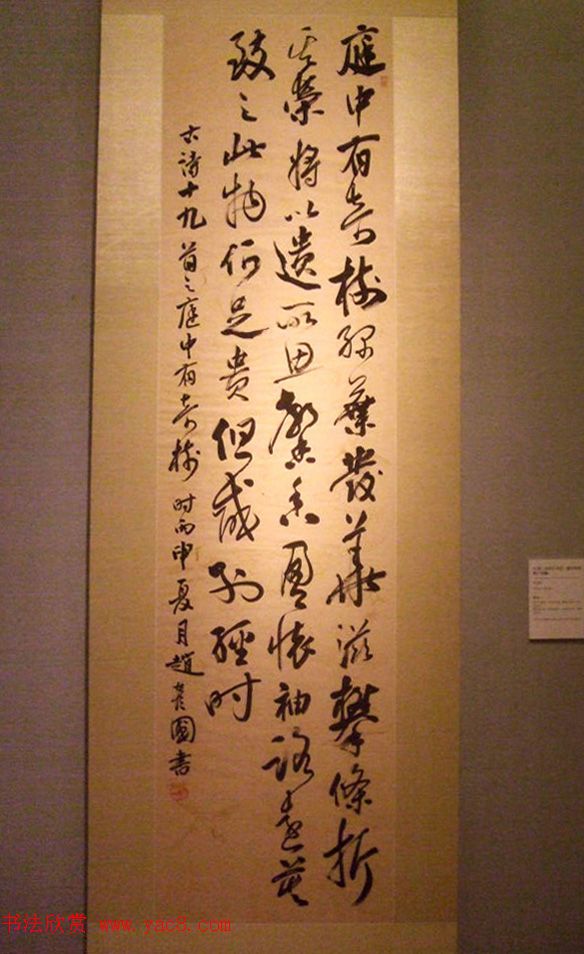 庭中有奇樹綠葉發華滋攀條折
其榮將以遺所思馨香盈懷袖路遠莫
致之此物何足貴但感別經时
古詩十九首之庭中有奇樹 时丙申夏月趙書
书法欣赏 www.yac8.com